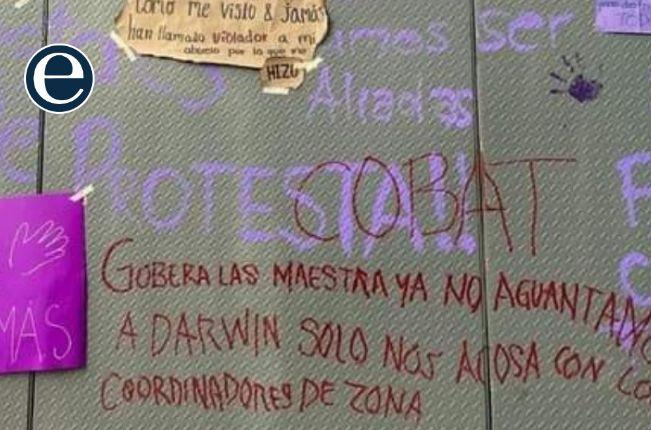 como me visto & jamás
han llamado violador a mi
abuelo por lo que me
HIZO
e
ser
Aliadas
PROTESTA!!
COBAT
GOBERA LAS MAESTRA YA NO AGUANTAMO
A DARWIN SOLO NOS ACOSA CON LO
COORDINADORES DE ZONA
MÁS
TOD
F
C